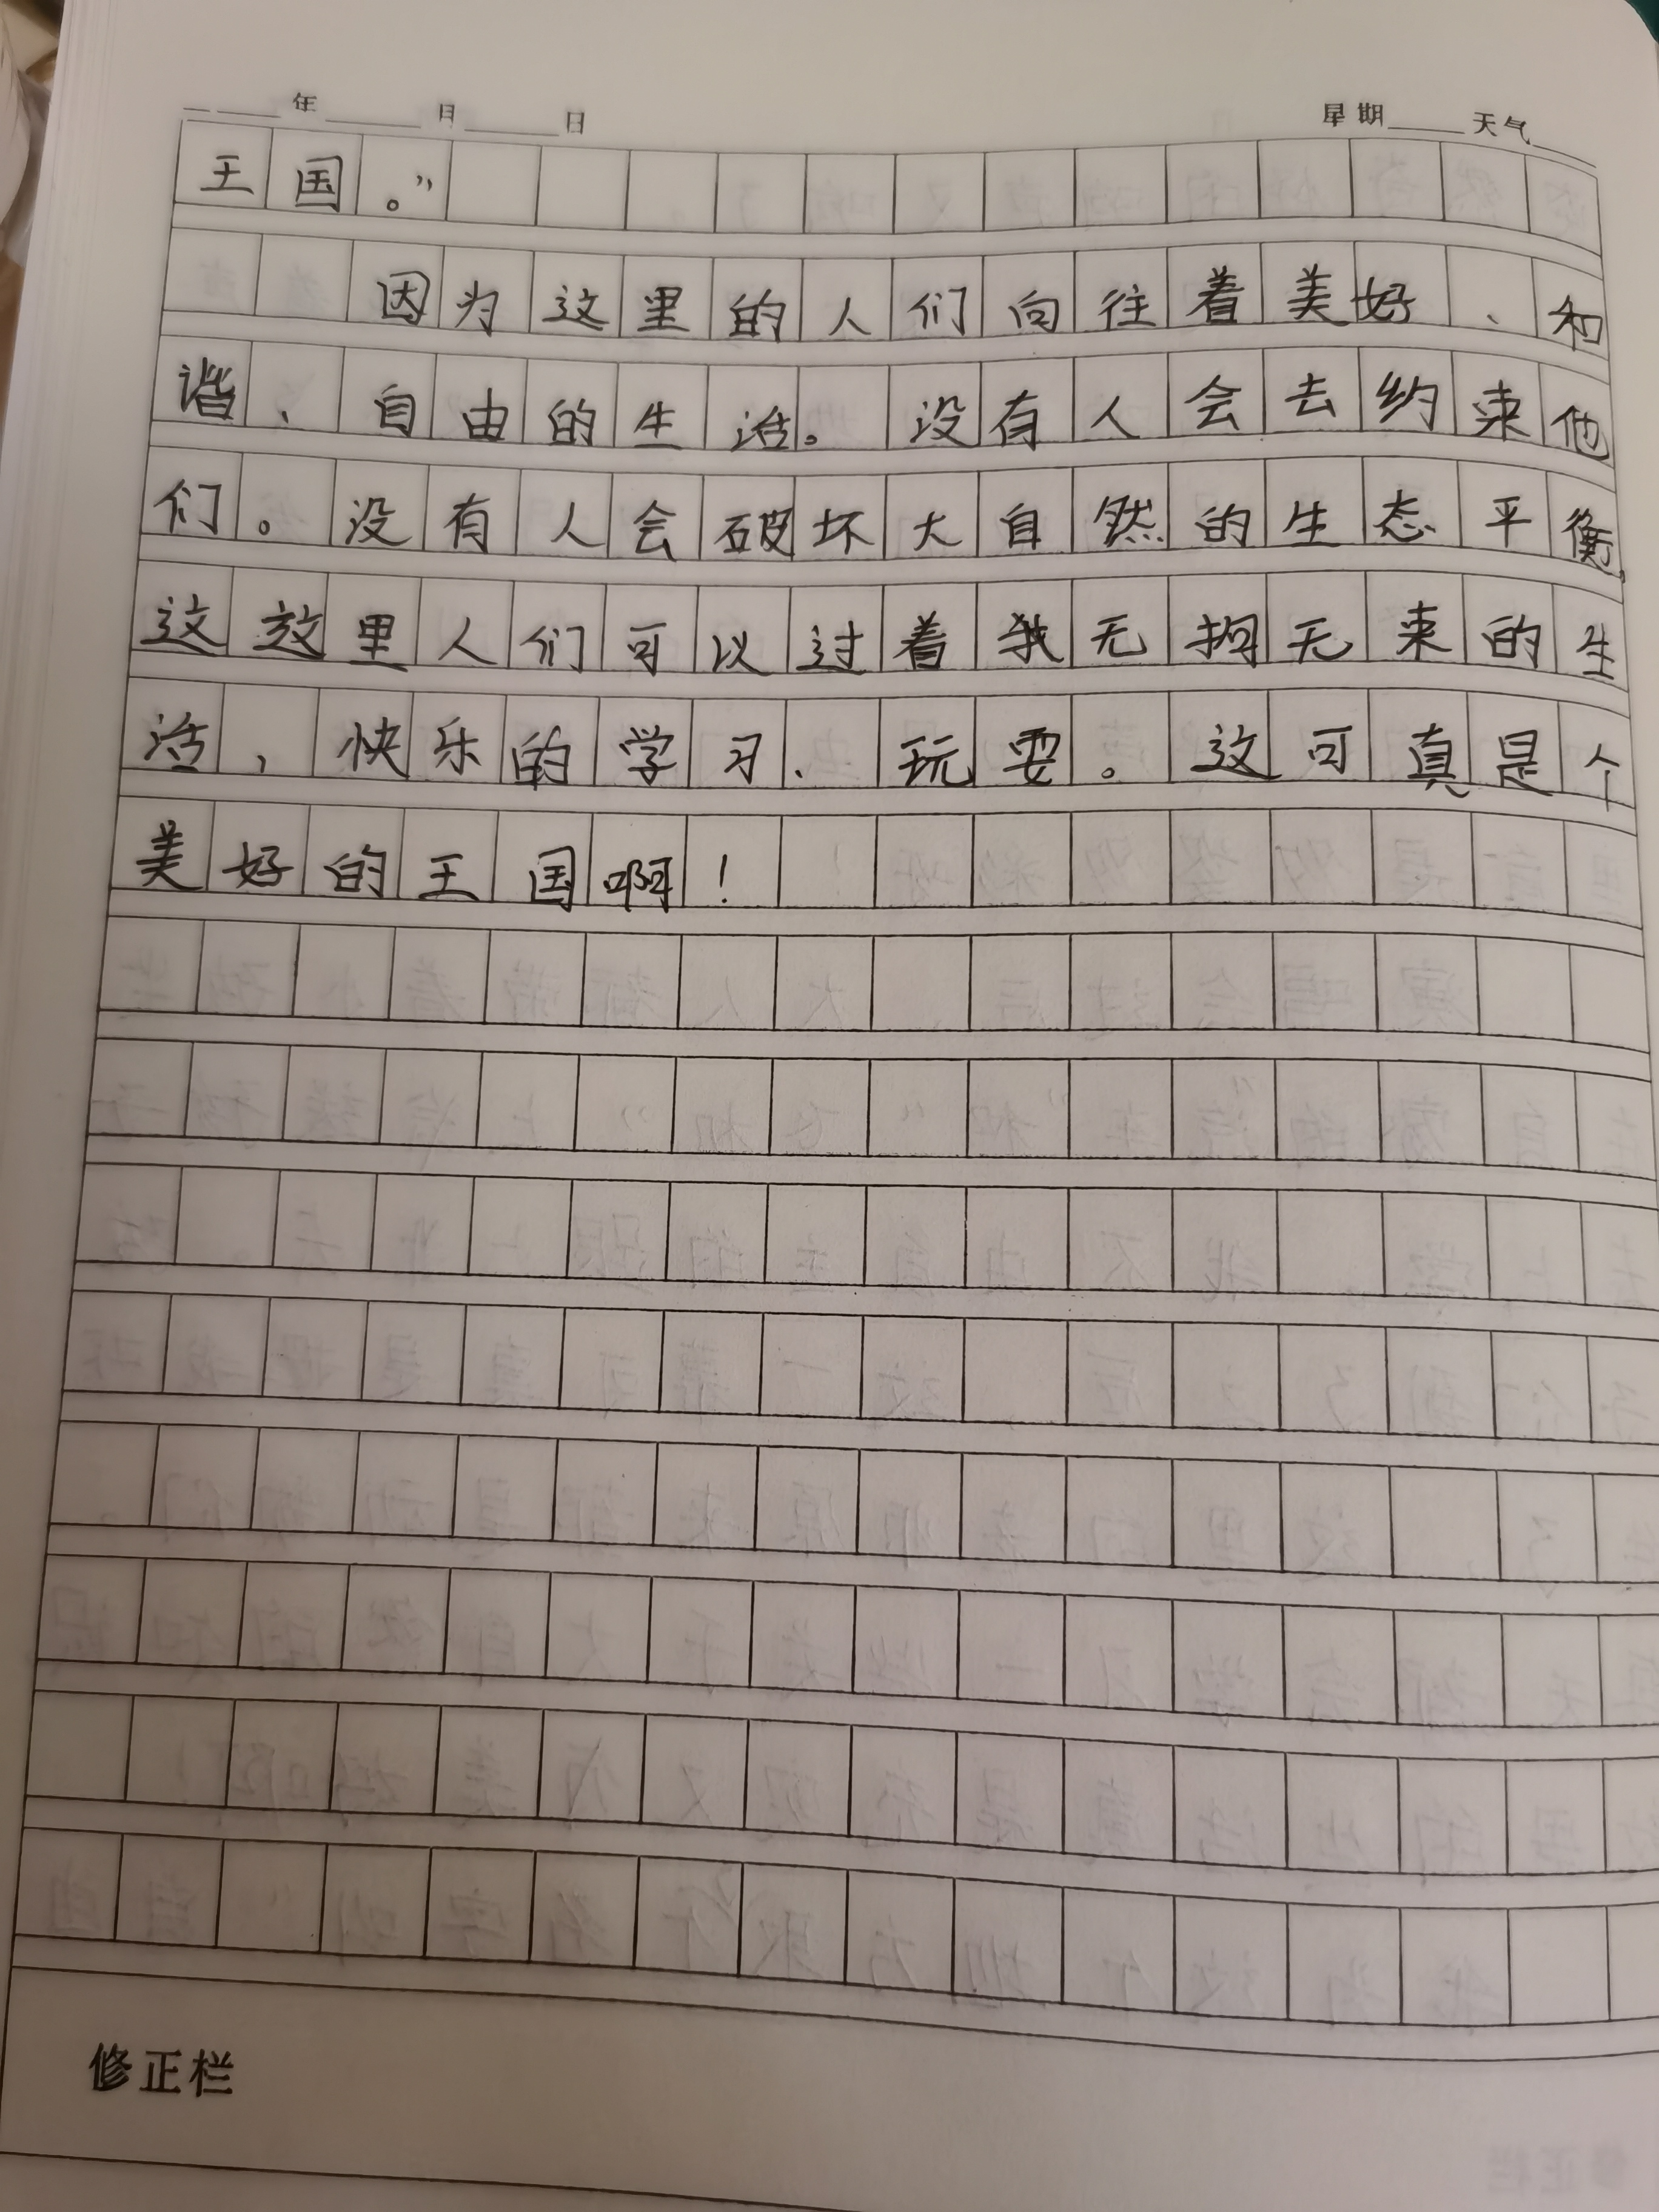 年 月 日 星期 天气
王国。”
因为这里的人们向往着美好、和
谐、自由的生活。没有人会去约束他
们。没有人会破坏大自然的生态平衡,
这这里人们可以过着我无拘无束的生
活,快乐的学习、玩耍。这可真是个
美好的王国啊!
修正栏